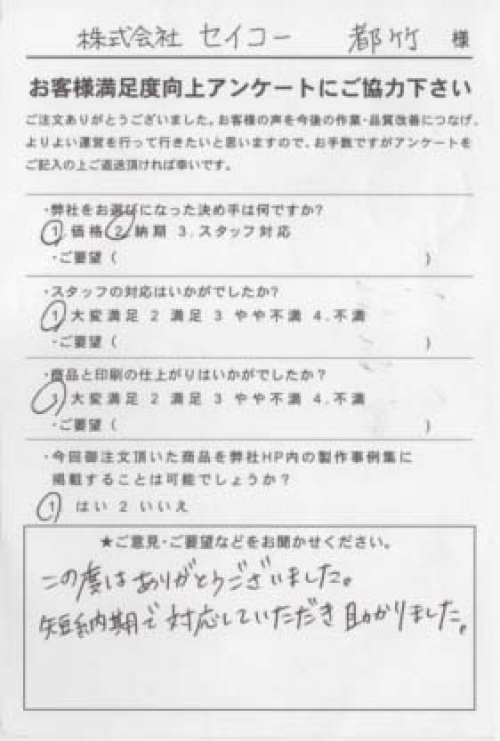 株式会社 セイコー 都竹 様
お客様満足度向上アンケートにご協力下さい
ご注文ありがとうございました。お客様の声を今後の作業・品質改善につなげ、
よりよい運営を行って行きたいと思いますので、お手数ですがアンケートを
ご記入の上ご返送頂ければ幸いです。
・弊社をお選びになった決め手は何ですか?
1.価格 2.納期 3.スタッフ対応
・ご要望( )
・スタッフの対応はいかがでしたか?
1 大変満足 2 満足 3 やや不満 4.不満
・ご要望( )
・商品と印刷の仕上がりはいかがでしたか?
1 大変満足 2 満足 3 やや不満 4.不満
・ご要望( )
・今回御注文頂いた商品を弊社HP内の製作事例集に
掲載することは可能でしょうか?
1 はい 2 いいえ
★ご意見・ご要望などをお聞かせください。
この度はありがとうございました。
短納期で対応していただき助かりました。